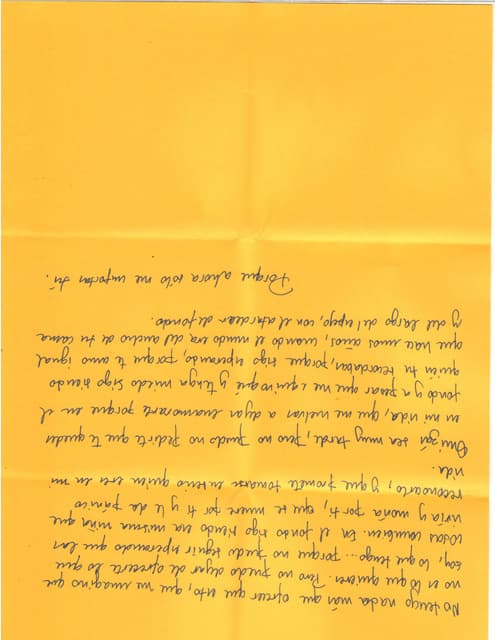 No tengo nada más que ofrecer que esto, que me imagino que
no es lo que quieres. Pero no puedo dejar de ofrecerte lo que
soy, lo que tengo... porque no puedo seguir esperando que las
cosas cambien. En el fondo sigo siendo esa misma niña que
vivía y moría por ti, que se muere por ti y le da pánico
reconocerlo, y que promete tomarse en serio quién eres en mi
vida.
Quizás sea muy tarde, pero no puedo no pedirte que te quedes
en mi vida, que me vuelvas a dejar enamorarte porque en el
fondo y a pesar que me equivoqué y tenga miedo sigo siendo
quién tu recordabas, porque sigo esperando, porque te amo igual
que hace unos años, cuando el mundo era del ancho de tu cama
y del largo del espejo, con el atardecer de fondo.
Porque ahora sólo me importas tú.